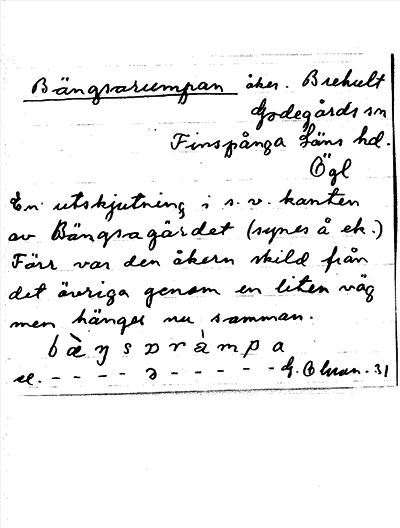 Bängsarumpan åker. Brekult
Godegårds sn
Finspånga Läns hd.
Ögl
En utskjutning i s.v. kanten
av Bängsagärdet (synes å ek.)
Förr var den åkern skild från
det övriga genom en liten väg
men hänger nu samman.
bæ̀ŋsɒràmpa
el. - - - - ə - - - - - G. Olsson. 31